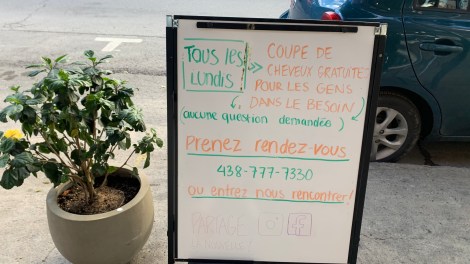 TOUS les LUNDIS
COUPE DE
CHEVEUX GRATUITE
POUR LES GENS
DANS LE BESOIN
(aucune question demandée)
Prenez rendez-vous
438-777-7330
ou entrez nous rencontrer!
PARTAGE